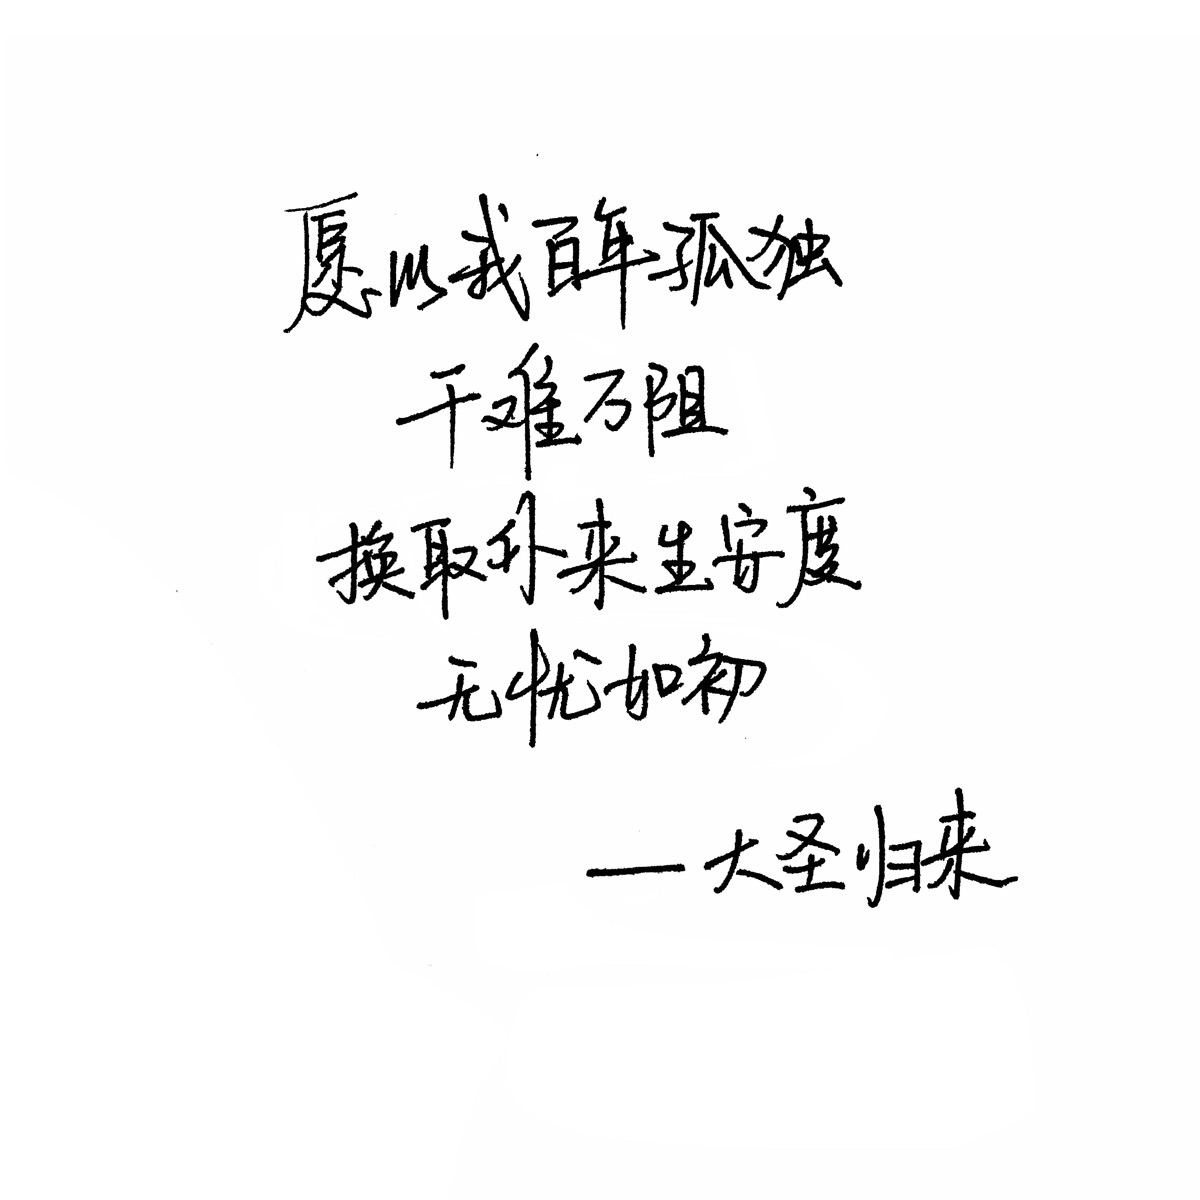 愿以我百年孤独
千难万阻
换取来生安度
无忧如初
—大圣归来